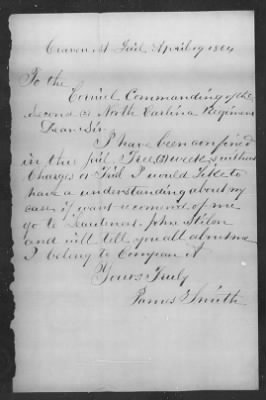 Craven St Jail April 19 1864
To the
Cornul Commanding of the
Second (2) North Carlina Regiment
Dear Sir
I have been confined
in this Jail Tree (3) weeks without
Charges or Trial I would like to
have a understanding about my
case if want recomend of me
go to Leautenant John
and will tell you all about me
I belong to Company
Yours Truly
James Smith